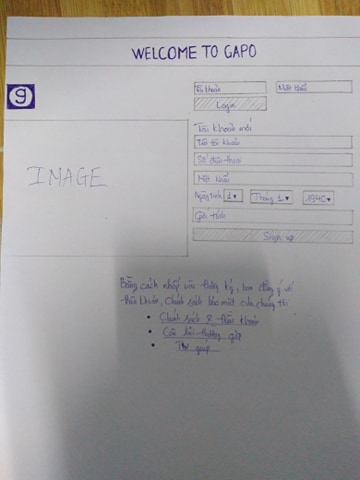 WELCOME TO GAPO
g
Tài khoản Mật khẩu
Login
IMAGE
Tài khoản mới
Tên tài khoản
Số điện thoại
Mật khẩu
Ngày sinh 1 Tháng 1 1940
Giới tính
Sign up
Bằng cách nhấp vào đăng ký, bạn đồng ý với
điều khoản, chính sách bảo mật của chúng tôi
• Chính sách & điều khoản
• Câu hỏi thường gặp
• Trợ giúp